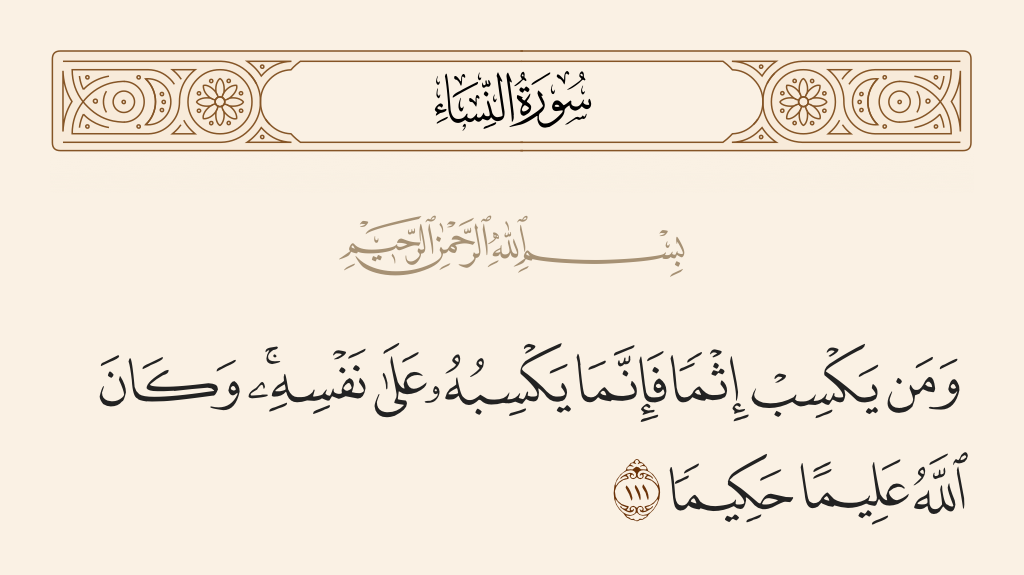 سُورَةُ النِّسَاءِ
بِسْمِ ٱللَّهِ ٱلرَّحْمَٰنِ ٱلرَّحِيمِ
وَمَن يَكْسِبْ إِثْمًا فَإِنَّمَا يَكْسِبُهُۥ عَلَىٰ نَفْسِهِۦ ۚ وَكَانَ
ٱللَّهُ عَلِيمًا حَكِيمًا ١١١